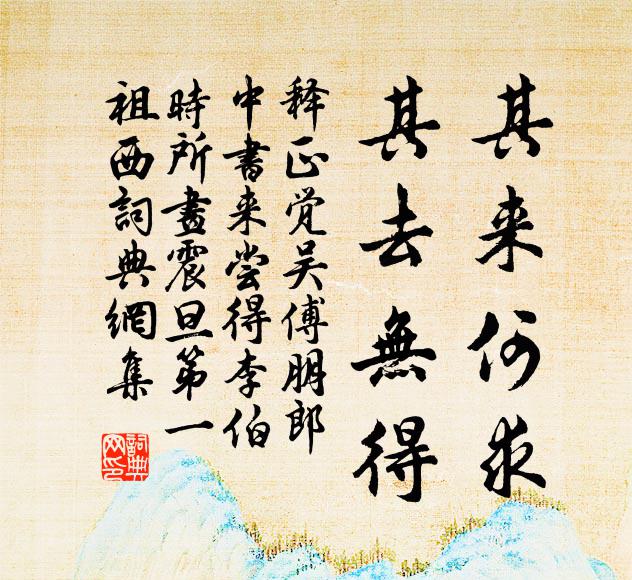 其来何求
其去無得
释正觉吴傅朋郎
中書来尝得李伯
時所畫震旦第一
祖西詞典網集
詞典
网印